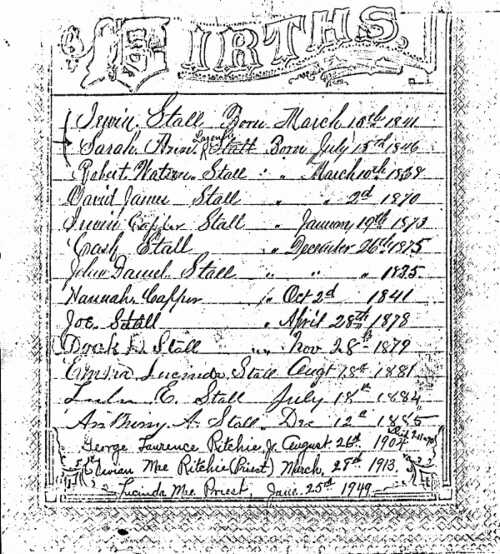 BIRTHS.
Irwin Stall Born March 10th 1841
Sarah Ann Stall Born July 15th 1846
Robert Watson Stall " " March 10th 1868
David James Stall " " 2d 1870
Irwin Capper Stall " January 19th 1873
Stall " December 26th 1875
John Daniel Stall " " " 1835
Hannah Capper " Oct 2d 1841
Joe Stall " April 28th 1878
Dock D. Stall " Nov 28th 1879
Lucinda Stall Augt 18th 1881
E. Stall July 18th 1884
A. Stall Dec 12th 1885
George Lawrence Ritchie Jr. August 26th 1904
Vivian Mae Ritchie (Priest) March 29th 1913
Lucinda Mae Priest June 25th 1949